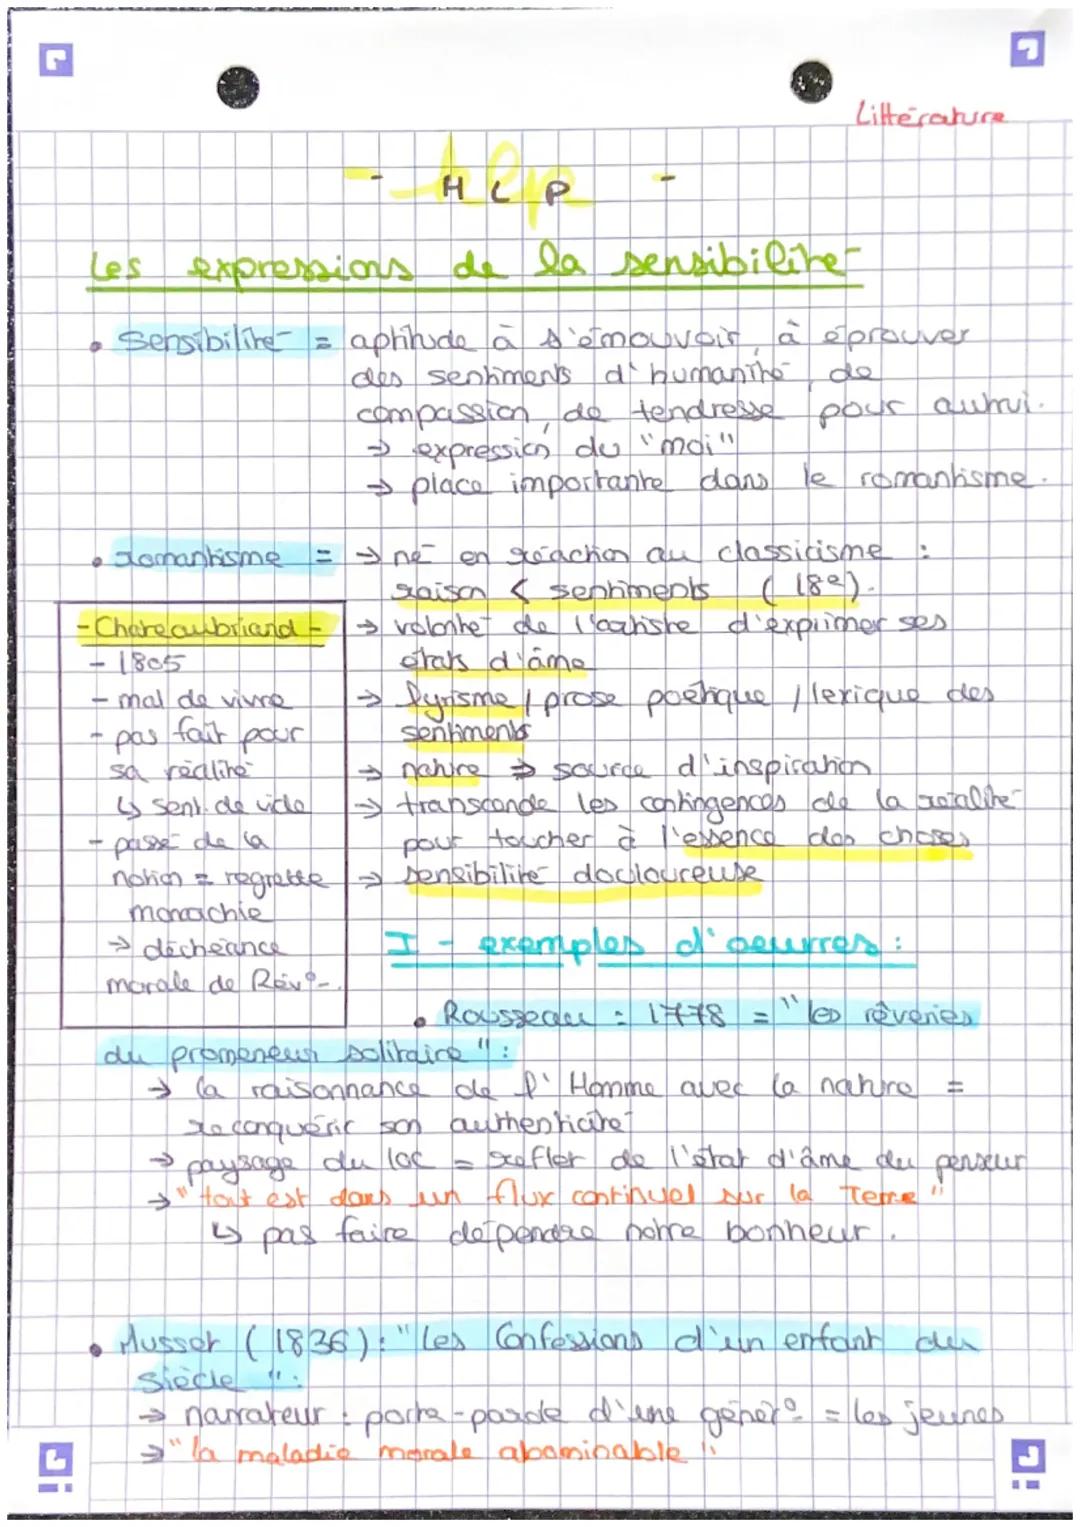 Littérature
- HLP -
Les expressions de la sensibilité
• Sensibilité = aptitude à s'émouvoir, à éprouver
des sentiments d'humanité, de
compassion, de tendresse pour autrui.
→ expression du "moi"
→ place importante dans le romantisme.
• romantisme = → né en réaction au classicisme :
raison < sentiments (18e).
→ volonté de l'artiste d'exprimer ses
états d'âme
→ lyrisme / prose poétique / lexique des
sentiments
→ nature → source d'inspiration
→ transcende les contingences de la réalité
pour toucher à l'essence des choses
→ sensibilité douloureuse
- Chateaubriand -
- 1805
- mal de vivre
- pas fait pour
sa réalité
↳ sent. de vide
- passé de la
notion = regrette
monachie
→ déchéance
morale de Rév°-.
I - exemples d'oeuvres :
• Rousseau : 1778 = "les rêveries
du promeneur solitaire" :
→ la raisonnance de l'Homme avec la nature =
reconquérir son authenticité
→ paysage du lac = reflet de l'état d'âme du penseur
→ "tout est dans un flux continuel sur la Terre"
↳ pas faire dépendre notre bonheur.
• Musset (1836) : "Les Confessions d'un enfant du
siècle" :
→ narrateur : porte-parole d'une génér° = les jeunes
→ "la maladie morale abominable"